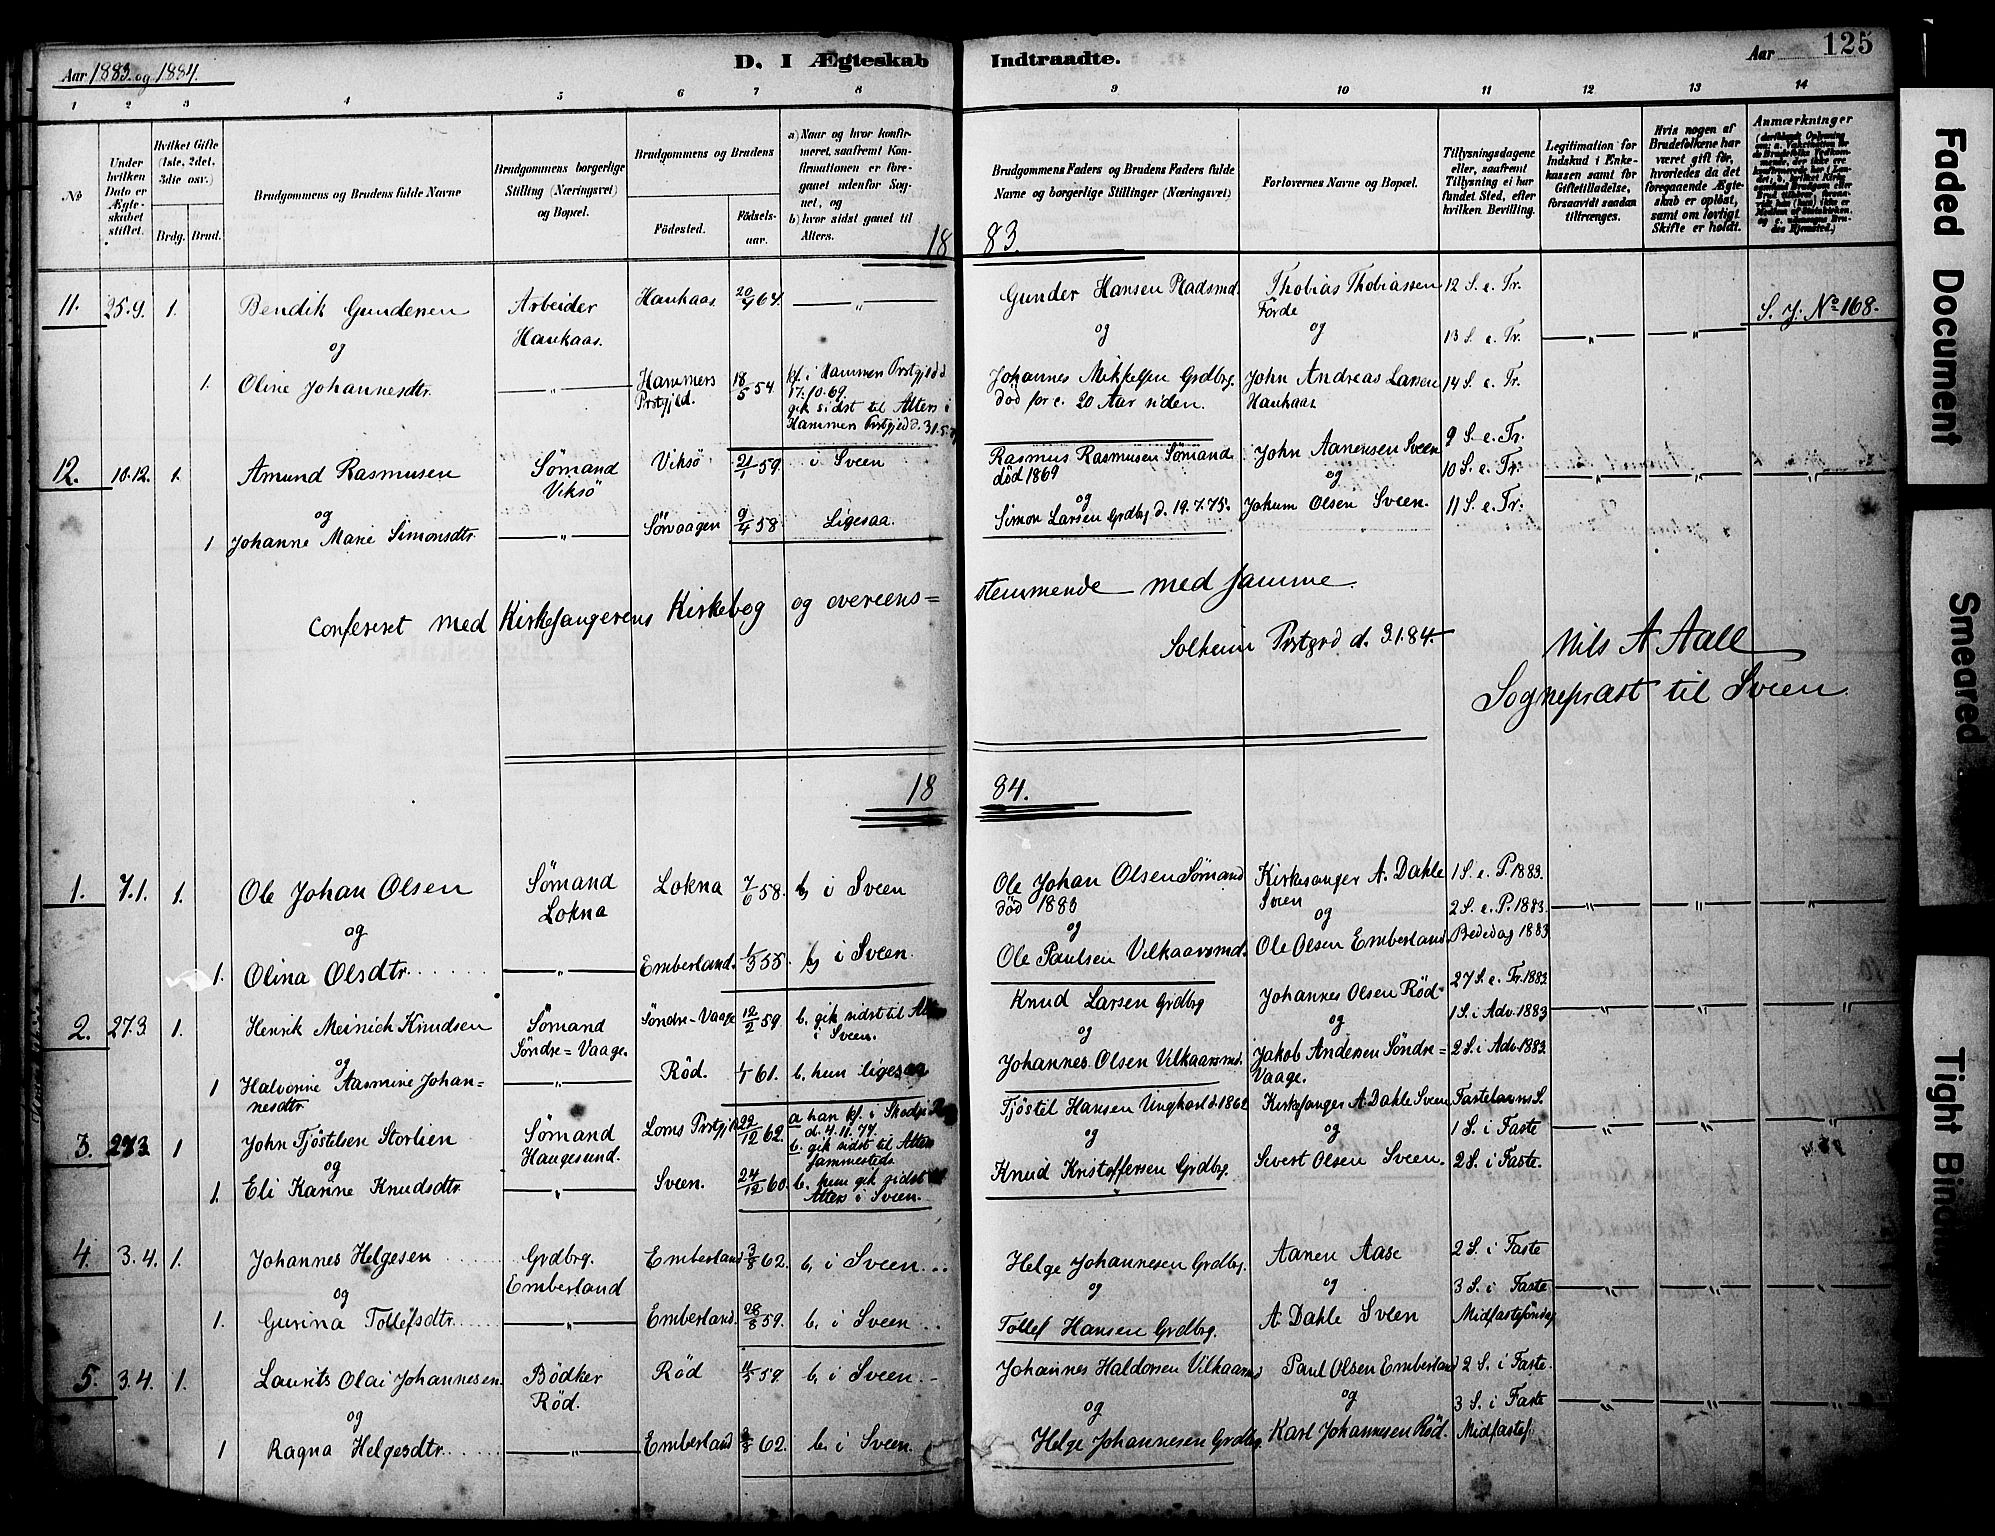 Aar 1883. og 1884.
D. I Ægteskab
Indtraadte.
Aar
125
1 2 3 4 5 6 7 8 9 10 11 12 13 14
No
Under hvilken Dato er Ægteskabet stiftet.
Hvilket Gifte (1ste, 2det, 3die osv.)
Brdg. Brud.
Brudgommens og Brudens fulde Navne
Brudgommens borgerlige Stilling (Næringsvei) og Bopæl.
Brudgommens og Brudens
Fødested.
Fødselsaar.
a) Naar og hvor konfirmeret, saafremt Konfirmationen er foregaaet udenfor Sognet, og
b) hvor sidst gaaet til Alters.
Brudgommens Faders og Brudens Faders fulde Navne og borgerlige Stillinger (Næringsvei)
Forlovernes Navne og Bopæl.
Tillysningsdagene eller, saafremt Tillysning ei har fundet Sted, efter hvilken Bevilling.
Legitimation for Indskud i Enkekassen samt for Giftetilladelse, forsaavidt saadan tiltrænges.
Hvis nogen af Brudefolkene har været gift før, hvorledes da det foregaaende Ægteskab er opløst, samt om lovligt Skifte er holdt.
Anmærkninger
18 83.
11. 25.9. 1. Bendik Gundersen Arbeider Haukaas 20/4 64. — „ — Gunder Hansen Pladsmd. Thobias Thobiassen 12 S. e. Tr.
og Haukaas. og Förde og 13 S. e. Tr. — „ — — „ — S. J. No 168.
1. Oline Johannesdtr. — „ — Hammers Prstgjeld. 18/5 54 kf. i Hammer Prstgjeld d.
17.10.69.
gik sidst til Alters i
Hammer Prstgjeld d. 31.5.
Johannes Mikkelsen Grdbrg. John Andreas Larsen 14 S. e. Tr.
död for c. 20 Aar siden. Haukaas
12. 10.12. 1. Amund Rasmusen Sömand Viksö 21/1 59. i Sveen Rasmus Rasmusen Sömand John Aanensen Sveen 9 S. e. Tr.
og Viksö död 1869 og og 10 S. e. Tr. — „ — — „ — — „ —
1 Johanne Marie Simonsdtr. — „ — Sörvaagen 9/4 58. Ligesaa. Simon Larsen Grdbg d. 19.7.75. Jokum Olsen Sveen. 11 S. e. Tr.
Confereret med Kirkesangerens Kirkebog og overeens=
stemmende med samme.
Solheim Prstgrd d. 3.1.84.
Nils A Aall
Sognepræst til Sveen
18 84.
1. 7.1. 1. Ole Johan Olsen Sömand Lokna 7/6 58. b, i Sveen Ole Johan Olsen Sömand Kirkesanger A. Dahle 1 S. e. P. 1883.
og Lokna död 1883 og Sveen og 2 S. e. P. 1883. — „ — — „ — — „ —
1. Olina Olsdtr. — „ — Emberland. 1/3 55. b, i Sveen. Ole Paulsen Vilkaarsmd. Ole Olsen Emberland. Bededag 1883
2. 27.3 1. Henrik Meinich Knudsen Sömand Söndre-Vaage 12/2 59. b. gik sidst til Alters i Sveen. Knud Larsen Grdbg Johannes Olsen Röd 27 S. e. Tr. 1883.
og Söndre=Vaage. og og 1 S. i Adv. 1883 — „ — — „ — — „ —
1 Halvorine Aasmine Johan=
nesdtr. — „ — Röd. 1/1 61. b. hun ligesaa Johannes Olsen Vilkaarsmd. Jakob Andersen Söndre=
Vaage. 2 S. i Adv. 1883.
3. 27.3 1 John Tjöstelsen Storlien Sömand Loms Prstgjld 22/12 62. a han kf. i
d. 4.11.77.
b. gik sidst til Alters
sammesteds. Tjöstel Hansen Ungkarl d. 1862 Kirkesanger A Dahle Sveen Fastelavns S.
og Haugesund. og og 1 S. i Faste — „ — — „ — — „ —
1. Eli Karine Knudsdtr. — „ — Sveen. 24/12 60. b. hun gik sidst til
Alters i Sveen. Knud Kristoffersen Grdbg. Sivert Olsen Sveen. 2 S. i Faste.
4. 3.4. 1. Johannes Helgesen Grdbrg. Emberland 3/8 62. b, i Sveen. Helge Johannesen Grdbg. Aanen Aase 2 S. i Faste
og Emberland og og 3 S. i Faste — „ — — „ — — „ —
1. Gurina Tollefsdtr. — „ — Emberland. 28/8 59. b, i Sveen Tollef Hansen Grdbg. A Dahle Sveen Midfastesöndag
5. 3.4. 1. Laurits Olai Johannesen Bödker Röd 59. b, i Sveen. Johannes Haldorsen Vilkaarsmd Paul Olsen Emberland 2 S. i Faste.
og Röd. og og 3 S. i Faste — „ — — „ — — „ —
1 Ragna Helgesdtr. — „ — Emberland 62. b, i Sveen. Helge Johannesen Grdbg. Karl Johannesen Röd. Midfastes.
Faded Document
Smeared
Tight Binding